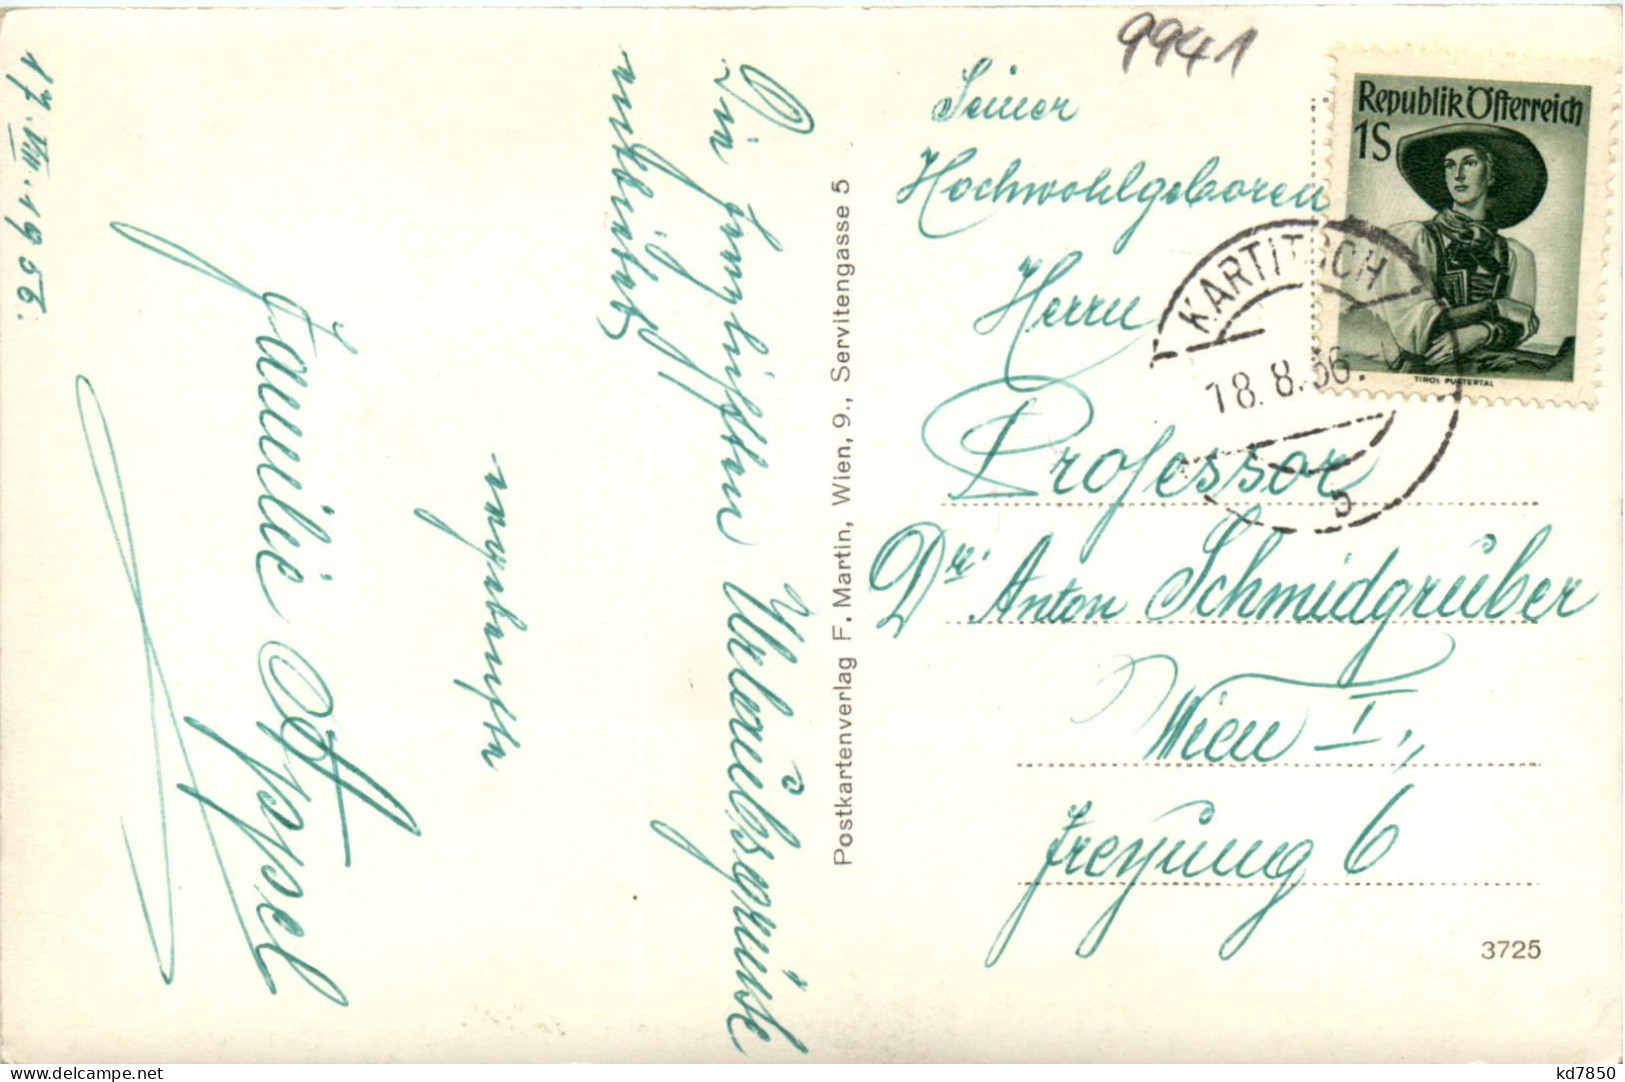 17.VIII.1956.
Die herzlichsten Urlaubsgrüße
entbietet
ergebenste
Familie Appel
Postkartenverlag F. Martin, Wien, 9., Servitengasse 5
9941
Seiner
Hochwohlgeboren
Herrn
Professor
Dr. Anton Schmidgrüber
Wien I.,
Freyung 6
3725
Republik Österreich
1S
TIROL PUSTERTAL
KARTITSCH
18.8.56.
b
kd7850